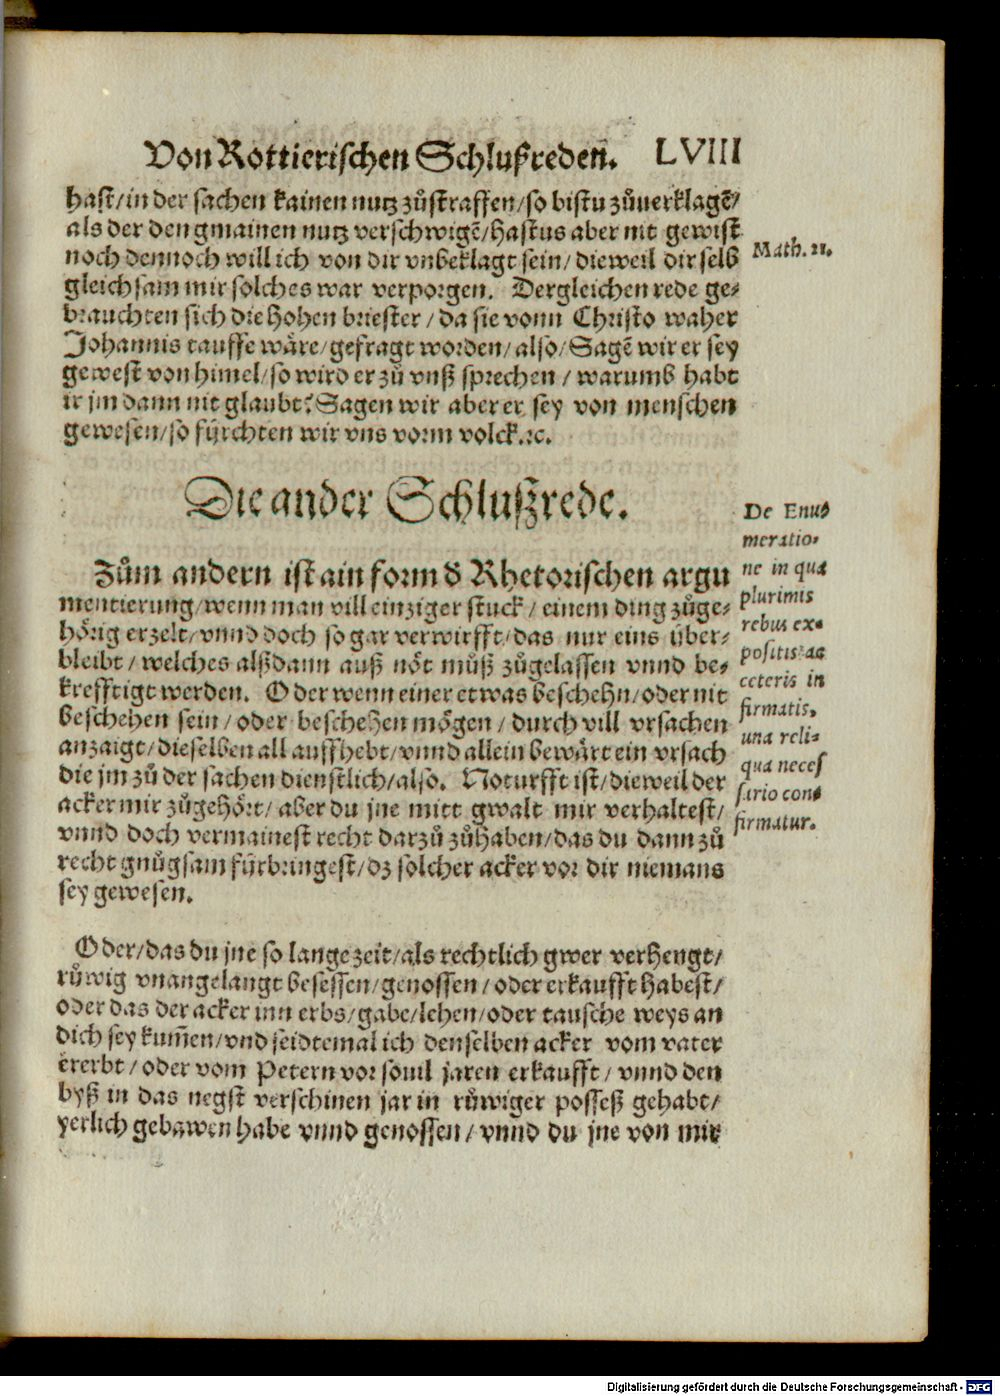 Von Rottierischen Schlußreden. LVIII
hast/in der sachen kainen nutz zůstraffen/so bistu zůuerklagẽ/
als der den gmainen nutz verschwigẽ/hastus aber nit gewist
noch dennoch will ich von dir vnbeklagt sein/dieweil dir selb
gleichsam mir solches war verporgen. Dergleichen rede ge-
brauchten sich die Hohen briester/da sie vonn Christo waher
Johannis tauffe wäre/gefragt worden/also/Sagẽ wir er sey
gewest von himel/so wird er zů vnß sprechen/warumb habt
ir jm dann nit glaubt? Sagen wir aber er sey von menschen
gewesen/so fürchten wir vns vorm volck.ꝛc.
Math. 21.
Die ander Schlußrede.
Zům andern ist ain form d̕ Rhetorischen argu
mentierung/wenn man vill einziger stuck/einem ding zůge-
hörig erzelt/vnnd doch so gar verwirfft/das nur eins über-
bleibt/welches alßdann auß nöt můß zůgelassen vnnd be-
krefftigt werden. Oder wenn einer etwas beschehn/oder nit
beschehen sein/oder beschehen mögen/durch vill vrsachen
anzaigt/dieselben all auffhebt/vnnd allein bewärt ein vrsach
die jm zů der sachen dienstlich/also. Noturfft ist/dieweil der
acker mir zůgehört/aber du jne mitt gwalt mir verhaltest/
vnnd doch vermainest recht darzů zůhaben/das du dann zů
recht gnůgsam fürbringest/dz solcher acker vor dir niemans
sey gewesen.
De Enu-
meratio-
ne in qua
plurimis
rebus ex-
positis ac
ceteris in
firmatis,
una reli-
qua neces
sario con-
firmatur.
Oder/das du jne so lange zeit/als rechtlich gwer verhengt/
růwig vnangelangt besessen/genossen/oder erkaufft habest/
oder das der acker inn erbs/gabe/lehen/oder tausche weys an
dich sey kum̃en/vnd seidtemal ich denselben acker vom vater
ererbt/oder vom Petern vor souil jaren erkaufft/vnnd den
byß in das negst verschinen jar in růwiger posseß gehabt/
yerlich gebawen habe vnnd genossen/vnnd du jne von mir
Digitalisierung gefördert durch die Deutsche Forschungsgemeinschaft - DFG